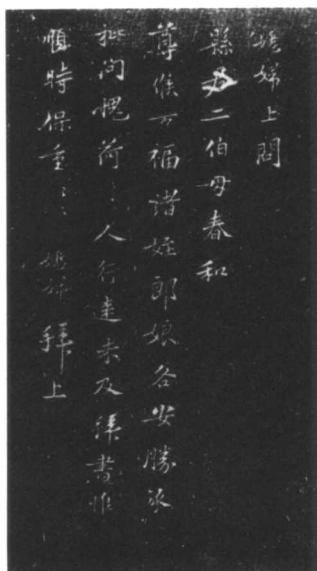 嫂婦上問
縣君二伯母春和
尊候万福諸姪郎娘各安勝承
批问愧荷〻人行速未及拜書惟
順時保重〻〻 嫂婦 拜上